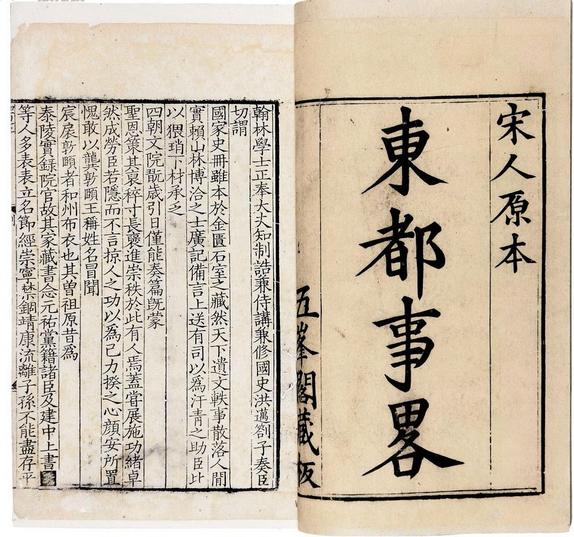 宋人原本
東都事畧
五峯閣藏板
翰林學士正奉大夫知制誥兼侍講兼修國史洪邁劄子奏臣
切謂
國家史冊雖本於金匱石室之藏然天下遺文軼事散落人間
實賴山林博洽之士廣記備言上送有司以爲汗青之助臣此
以猥瑣下材承乏
四朝文院散歲引日僅能奏篇旣蒙
聖恩策其裒稡寸長襃進崇秩於此有人焉蓋嘗展施功緒卓
然成勞臣若隱而不言掠人之功以爲己力揆之心顏安所置
愧敢以龔敦頤王稱姓名冒聞
宸扆敦頤者和州布衣也其曾祖原昔爲
泰陵實錄院官故其家藏書念元祐黨籍諸臣及建中上書
等人多表表立名節經崇寧禁錮靖康流離子孫不能盡存平